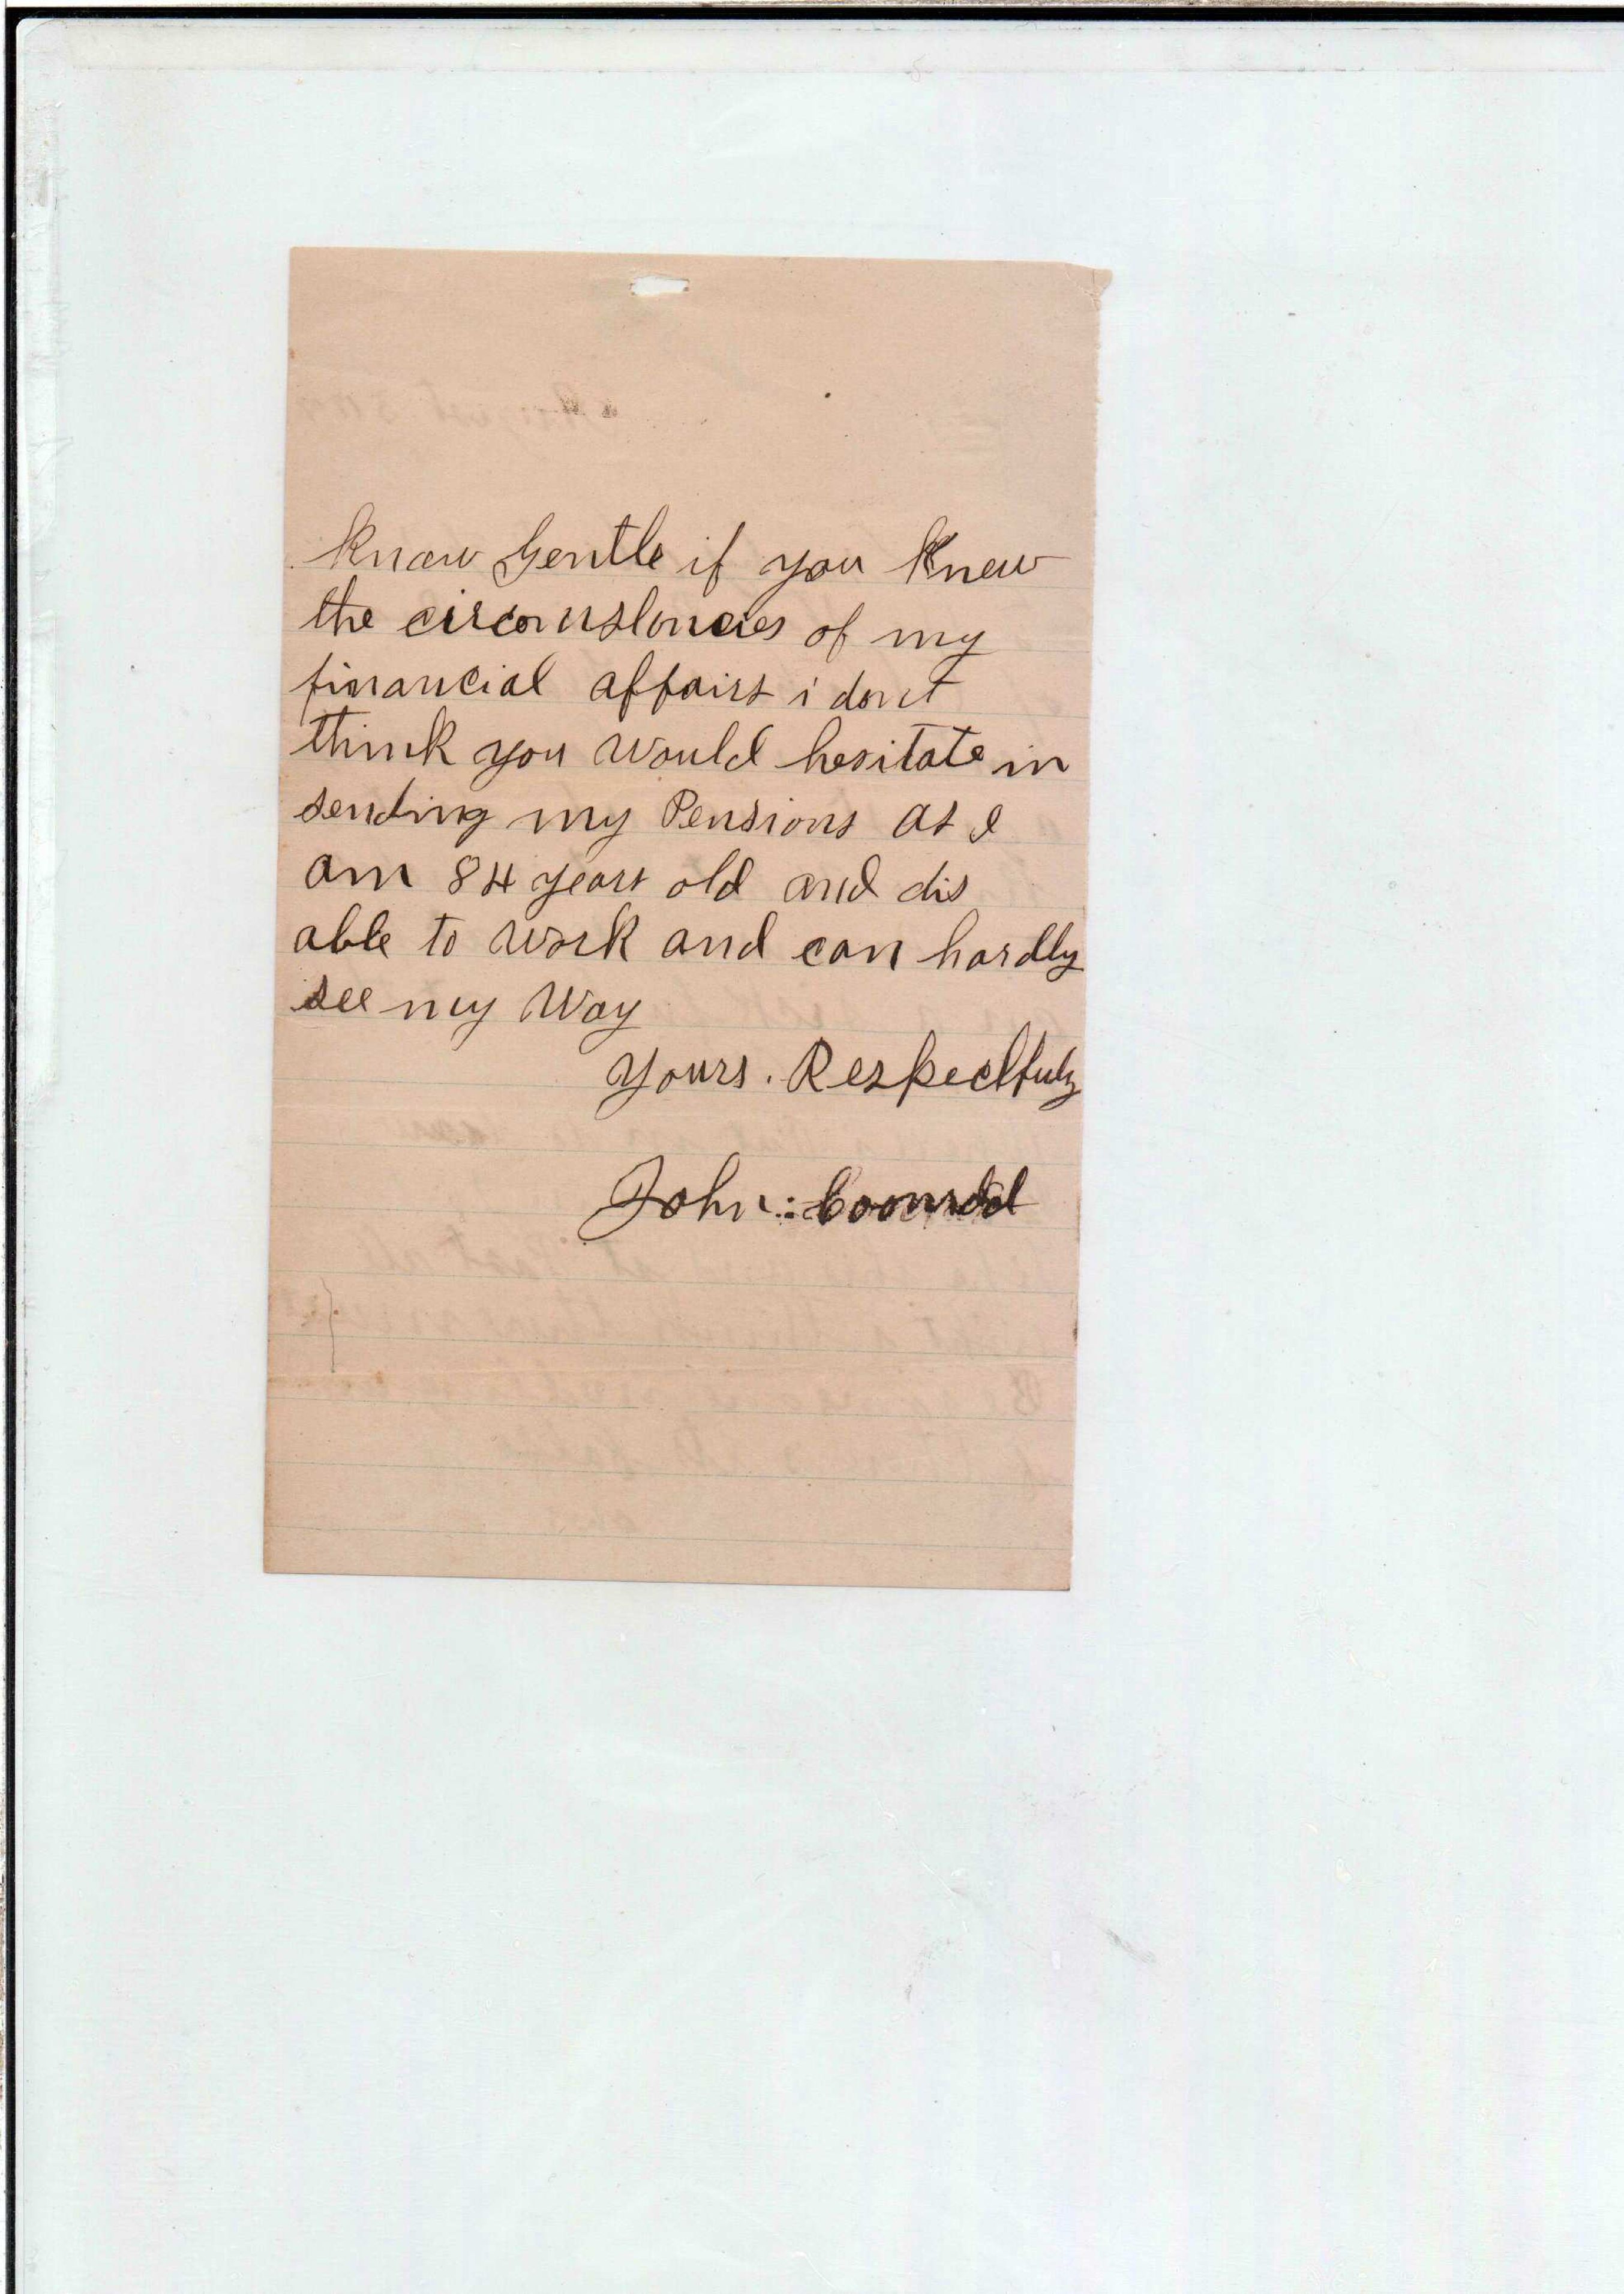 know Gentle if you knew
the circomstances of my
financial affairs i dont
think you would hesitate in
sending my Pensions as I
am 84 years old and dis
able to work and can hardly
see my way
yours. Respectfuly
John: